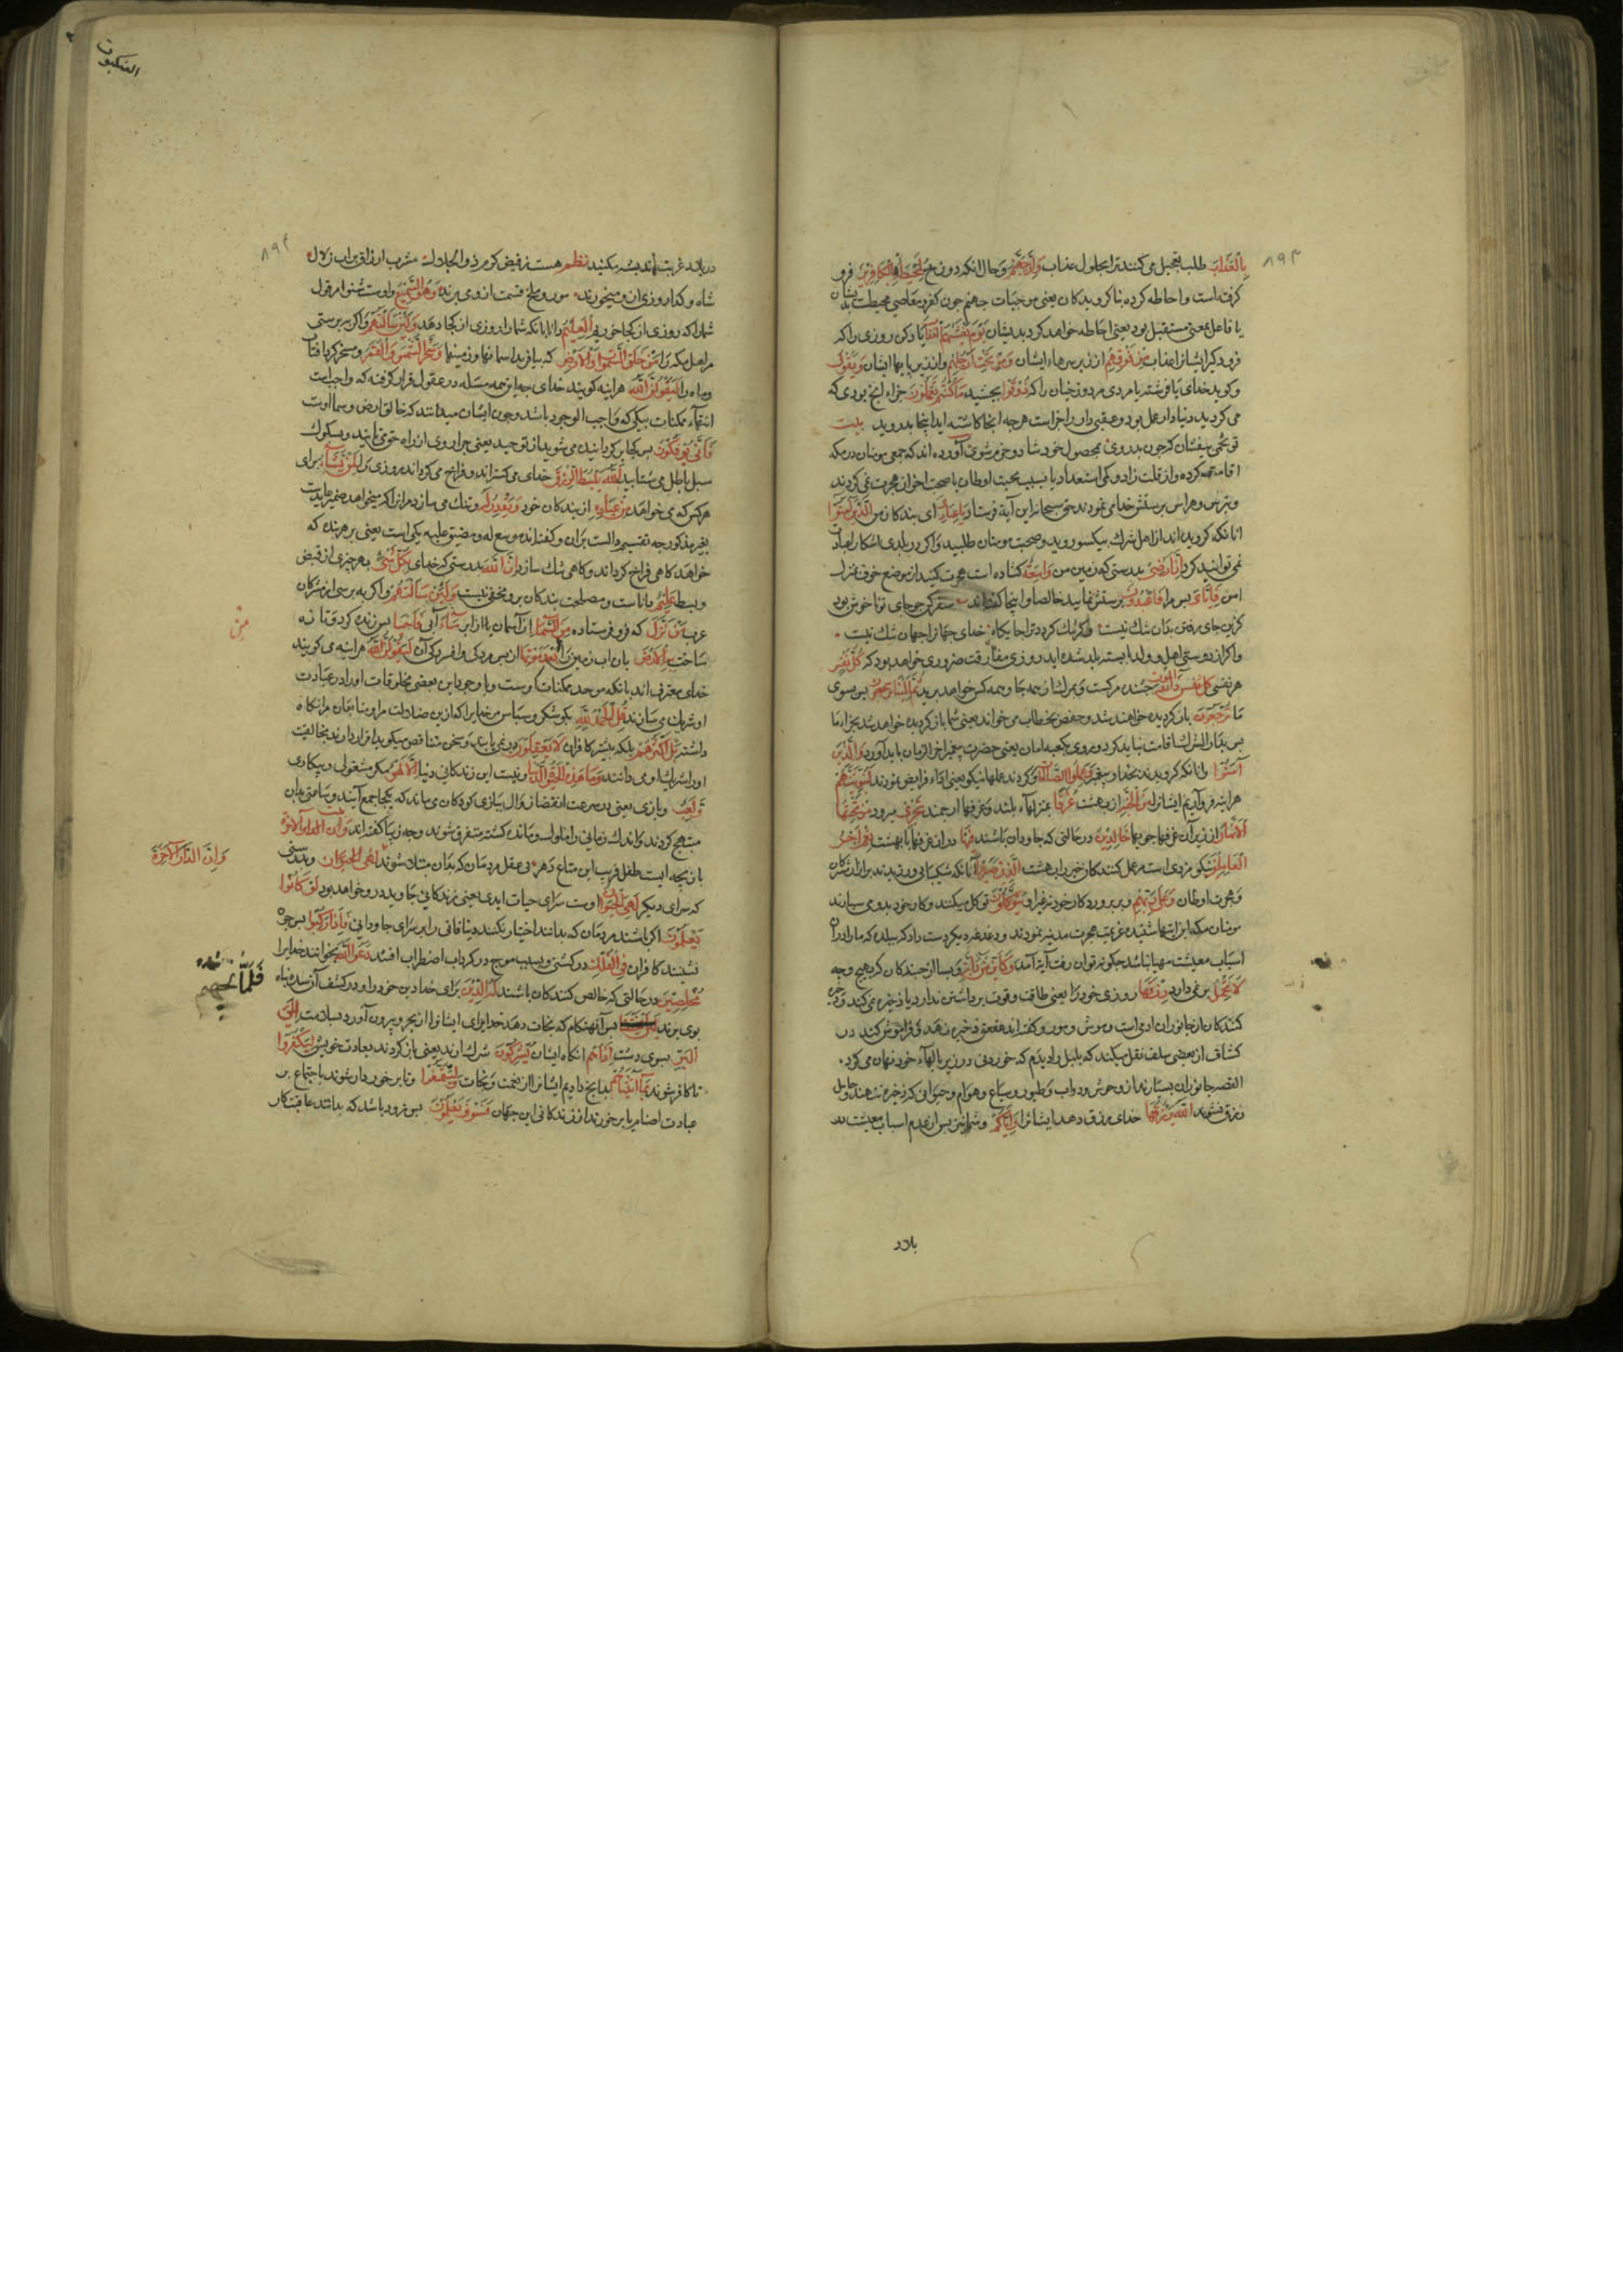 بِالْعَذَابِ طلب تعجیل می کنند ترا بحلول عذاب وَاِنَّ جَهَنَّمَ و حال آنکه دوزخ لَمُحِيطَةٌ بِالْكَافِرِينَ فرو
کرفته است و احاطه کرده بنا کرویدکان یعنی موجبات جهنم چون کفر و معاصی محیطست بدیشان
یا فاعل بمعنی مستقبل بود یعنی احاطه خواهد کرد بدیشان يَوْمَ يَغْشٰيهُمُ الْعَذَابُ یاد کن روزی را که
فرو کیرد ایشانرا عذاب مِنْ فَوْقِهِمْ از زبر سرهاء ایشان وَمِنْ تَحْتِ اَرْجُلِهِمْ و از زیر پایها ایشان وَيَقُولُ
و کوید خدای یا فرشته یا مردی مر دوزخیان را که ذُوقُوا بچشید مَا كُنْتُمْ تَعْمَلُونَ جزاء آنچ بودی که
می کردید دنیا دار عمل بود و عقبی دار جزاست هرچه آنجا کاشته اید اینجا بدروید بیت
تو تخمی بیفشان که چون بدروی ز محصول خود شاد و خرم شوی آورده اند که جمعی مومنان در مکه
اقامت کرده و از قلت زاد و کمی استعداد یا بسبب محبت اوطان یا صحبت اخوان هجرت نمی کردند
و بترس و هراس پرستش خدا می نمودند حق سبحانه این آیة فرستاد يَا عِبَادِيَ ای بندکان من الَّذِينَ آمَنُوا
آنانکه کرویده اند از اهل شرک بیکسو روید و صحبت مومنان طلبید و اکر در بلدی آشکارا عبادت
نمی توانید کرد اِنَّ اَرْضِي بدرستی که زمین من وَاسِعَةٌ کشاده است هجرت کنید از موضع خوف بمنزل
امن فَاِيَّايَ پس مرا فَاعْبُدُونِ پرستش نمایید خالصا و اینجا کفته اند سفر کن چو جای تو ناخوش بود
کزین جای رفتن بدان ننک نیست وکر تنک کردد ترا جایکاه خدای جهانرا جهان تنک نیست
و اکر از دوستی اهل و ولد پابسته بلد شده اید روزی مفارقت ضروری خواهد بود که كُلُّ نَفْسٍ
هر نفسی ذَائِقَةُ الْمَوْتِ چشنده مرکست ثُمَّ اِلَيْنَا تُرْجَعُونَ پس بسوی
ما تُرْجَعُونَ باز کردیده خواهند شد و حفص بخطاب می خواند یعنی شما باز کردیده خواهید شد بجزاء ما
پس بدار الشرک اقامت نباید کرد و روی بکعبه امان یعنی حضرت پیغمبر آخر الزمان باید آورد وَالَّذِينَ
آمَنُوا و آنانکه کرویدند بخدا و پیغمبر وَعَمِلُوا الصَّالِحَاتِ و کردند عملها نیکو یعنی اداء فرایض نمودند لَنُبَوِّئَنَّهُمْ
هر آینه فرود آریم ایشانرا مِنَ الْجَنَّةِ از بهشت غُرَفًا بمنزلهاء بلند و غرفها ارجمند تَجْرِي میرود مِنْ تَحْتِهَا
الْاَنْهَارُ از زیر آن غرفها جویها خَالِدِينَ در حالتی که جاودان باشند فِيهَا دران غرفها یا بهشت نِعْمَ اَجْرُ
الْعَامِلِينَ نیکو مزدی است مر عمل کنندکان خیر را بهشت الَّذِينَ صَبَرُوا آنانکه شکیبائی ورزیدند بر ازار مشرکان
و هجرت اوطان وَعَلٰى رَبِّهِمْ و بر پروردکار خود نه غیر او يَتَوَكَّلُونَ توکل میکنند و کار خود بدو می سپارند
مومنان مکه این آیتها شنیده عزیمت هجرت مدینه نمودند و دغدغه دیکر دست داد که ببلده که ما را دران
اسباب معیشت مهیا نباشد چکونه توان رفت آیة آمد وَكَاَيِّنْ مِنْ دَابَّةٍ و بسا از جنبندکان که بهیچ وجه
لَا تَحْمِلُ بر نمی دارد رِزْقَهَا روزی خود را یعنی طاقت و قوت برداشتن ندارد یا ذخیره نمی کند و ذخیره
کنندکان از جانوران آدمی است و موش و مور و کفته اند عقعق ذخیره نهد و فراموش کند در
کشاف از بعضی سلف نقل میکند که بلبل را دیدم که خوردنی در زیر بالهاء خود نهان می کرد
القصه جانوران بسیارند از وحوش و دواب و طیور و سباع و هوام و حیوانی که ذخیره ننهند و حامل
رزق نشوند اَللّٰهُ يَرْزُقُهَا خدای رزق دهد ایشانرا وَاِيَّاكُمْ و شما نیز پس از عدم اسباب معیشت در
بلاد
العنکبوت
در بلاد غربت اندیشه مکنید نظم هست ز فیض کرم ذو الجلال مشرب ارزاق پر آب زلال
شاه و کدا روزی ازو میخورند مور و ملخ قسمت ازو می برند وَهُوَ السَّمِيعُ و اوست شنوا مر قول
شما را که روزی از کجا خوریم الْعَلِيمُ دانا بآنکه شما را روزی از کجا دهد وَلَئِنْ سَاَلْتَهُمْ و اکر بپرسی
مر اهل مکه را مَنْ خَلَقَ السَّمٰوَاتِ وَالْاَرْضَ که بیافرید اسمانها و زمینها وَسَخَّرَ الشَّمْسَ وَالْقَمَرَ و مسخر کرد آفتاب
و ماه را لَيَقُولُنَّ اللّٰهُ هر آینه کویند خدای چه این همه مسئله در عقول قرار کرفته که واجبست
انتهاء ممکنات بیکی که واجب الوجود باشد و چون ایشان میدانند که خالق ارض و سما اوست
فَاَنّٰى يُؤْفَكُونَ پس کجا بر کردانیده می شوید از توحید یعنی چرا روی از راه حق می تابید و بسکوک
سبل باطل می شتابید اَللّٰهُ يَبْسُطُ الرِّزْقَ خدای می کستراند و فراخ می کرداند روزی را لِمَنْ يَشَاءُ برای
هر کس که می خواهد مِنْ عِبَادِهِ از بندکان خود وَيَقْدِرُ لَهُ و تنک می سازد مر آنرا که میخواهد
خواهد کاهی فراخ کرداند و کاهی تنک سازد اِنَّ اللّٰهَ بدرستی که خدای بِكُلِّ شَيْءٍ بهر چیزی از قبض
و بسط عَلِيمٌ داناست و مصلحت بندکان برو مخفی نیست وَلَئِنْ سَاَلْتَهُمْ و اکر بپرسی از مشرکان
عرب مَنْ نَزَّلَ که فرو فرستاده مِنَ السَّمَاءِ از آسمان یا از ابر مَاءً آبی فَاَحْيَا پس زنده کرد و تازه
ساخت بِهِ الْاَرْضَ بآن آب زمین را مِنْ بَعْدِ مَوْتِهَا از پس مردکی و افسردکی آن لَيَقُولُنَّ اللّٰهُ هر آینه می کویند
خدای معترف اند بآنکه موجد ممکنات اوست و با وجود این بعضی مخلوقات او را در عبادت
او شریک می سازند قُلِ الْحَمْدُ لِلّٰهِ بکو شکر و سپاس مر خدایرا که ازین ضلالت مرا و متابعان مرا نکاه
داشته بَلْ اَكْثَرُهُمْ بلکه بیشتر کافران لَا يَعْقِلُونَ در نمی یابند و سخن متناقض میکویند اقرار دارند بخالقیت
او و شریک او می دانند وَمَا هٰذِهِ الْحَيٰوةُ الدُّنْيَا و نیست این زندکانی دنیا اِلَّا لَهْوٌ مکر مشغولی و بیکاری
وَلَعِبٌ و بازی یعنی در سرعت انقضا و زوال ببازی کودکان می ماند که یکجا جمع آیند و ساعتی بدان
مبتهج کردند و اندک زمانی را ملول و مانده کشته متفرق شوند و چه زیبا کفته اند بیت
بازیچه ایست طفل فریب این متاع دهر بی عقل مردمان که بدان مبتلا شوند لَهِيَ الْحَيَوَانُ و بدرستی
که سرای دیکر لَهِيَ الْحَيَوَانُ اوست سرای حیات ابدی یعنی زندکانی جاوید درو خواهد بود لَوْ كَانُوا
يَعْلَمُونَ اکر باشند مردمان که بدانند اختیار نکنند دنیا فانی را بر سرای جاودانی فَاِذَا رَكِبُوا پس چون
نشینند کافران فِي الْفُلْكِ در کشتی و بسبب موج در کرداب اضطراب افتند دَعَوُا اللّٰهَ بخوانند خدایرا
مُخْلِصِينَ در حالتی که خالص کنندکان باشند لَهُ الدِّينَ برای خدا دین خود را و در کشف آن شده پناه
بوی برند پس آنهنکام که نجات دهد خدای ایشانرا از بحر و بیرون آورد بسلامت اِلَى
الْبَرِّ بسوی دشت اِذَا هُمْ آنکاه ایشان يُشْرِكُونَ شرک آرند یعنی باز کردند بعادت خویش لِيَكْفُرُوا
تا کافر شوند بِمَا آتَيْنَاهُمْ بدانچ دادیم ایشانرا از نعمت و نجات وَلِيَتَمَتَّعُوا و تا برخوردار شوند باجتماع بر
عبادت اصنام یا برخورند از زندکانی این جهان فَسَوْفَ يَعْلَمُونَ پس زود باشد که بدانند عاقبت کار
وَاِنَّ الدَّارَ الْآخِرَةَ
مِنْ
فَلَمَّا نَجّٰیهُمْ